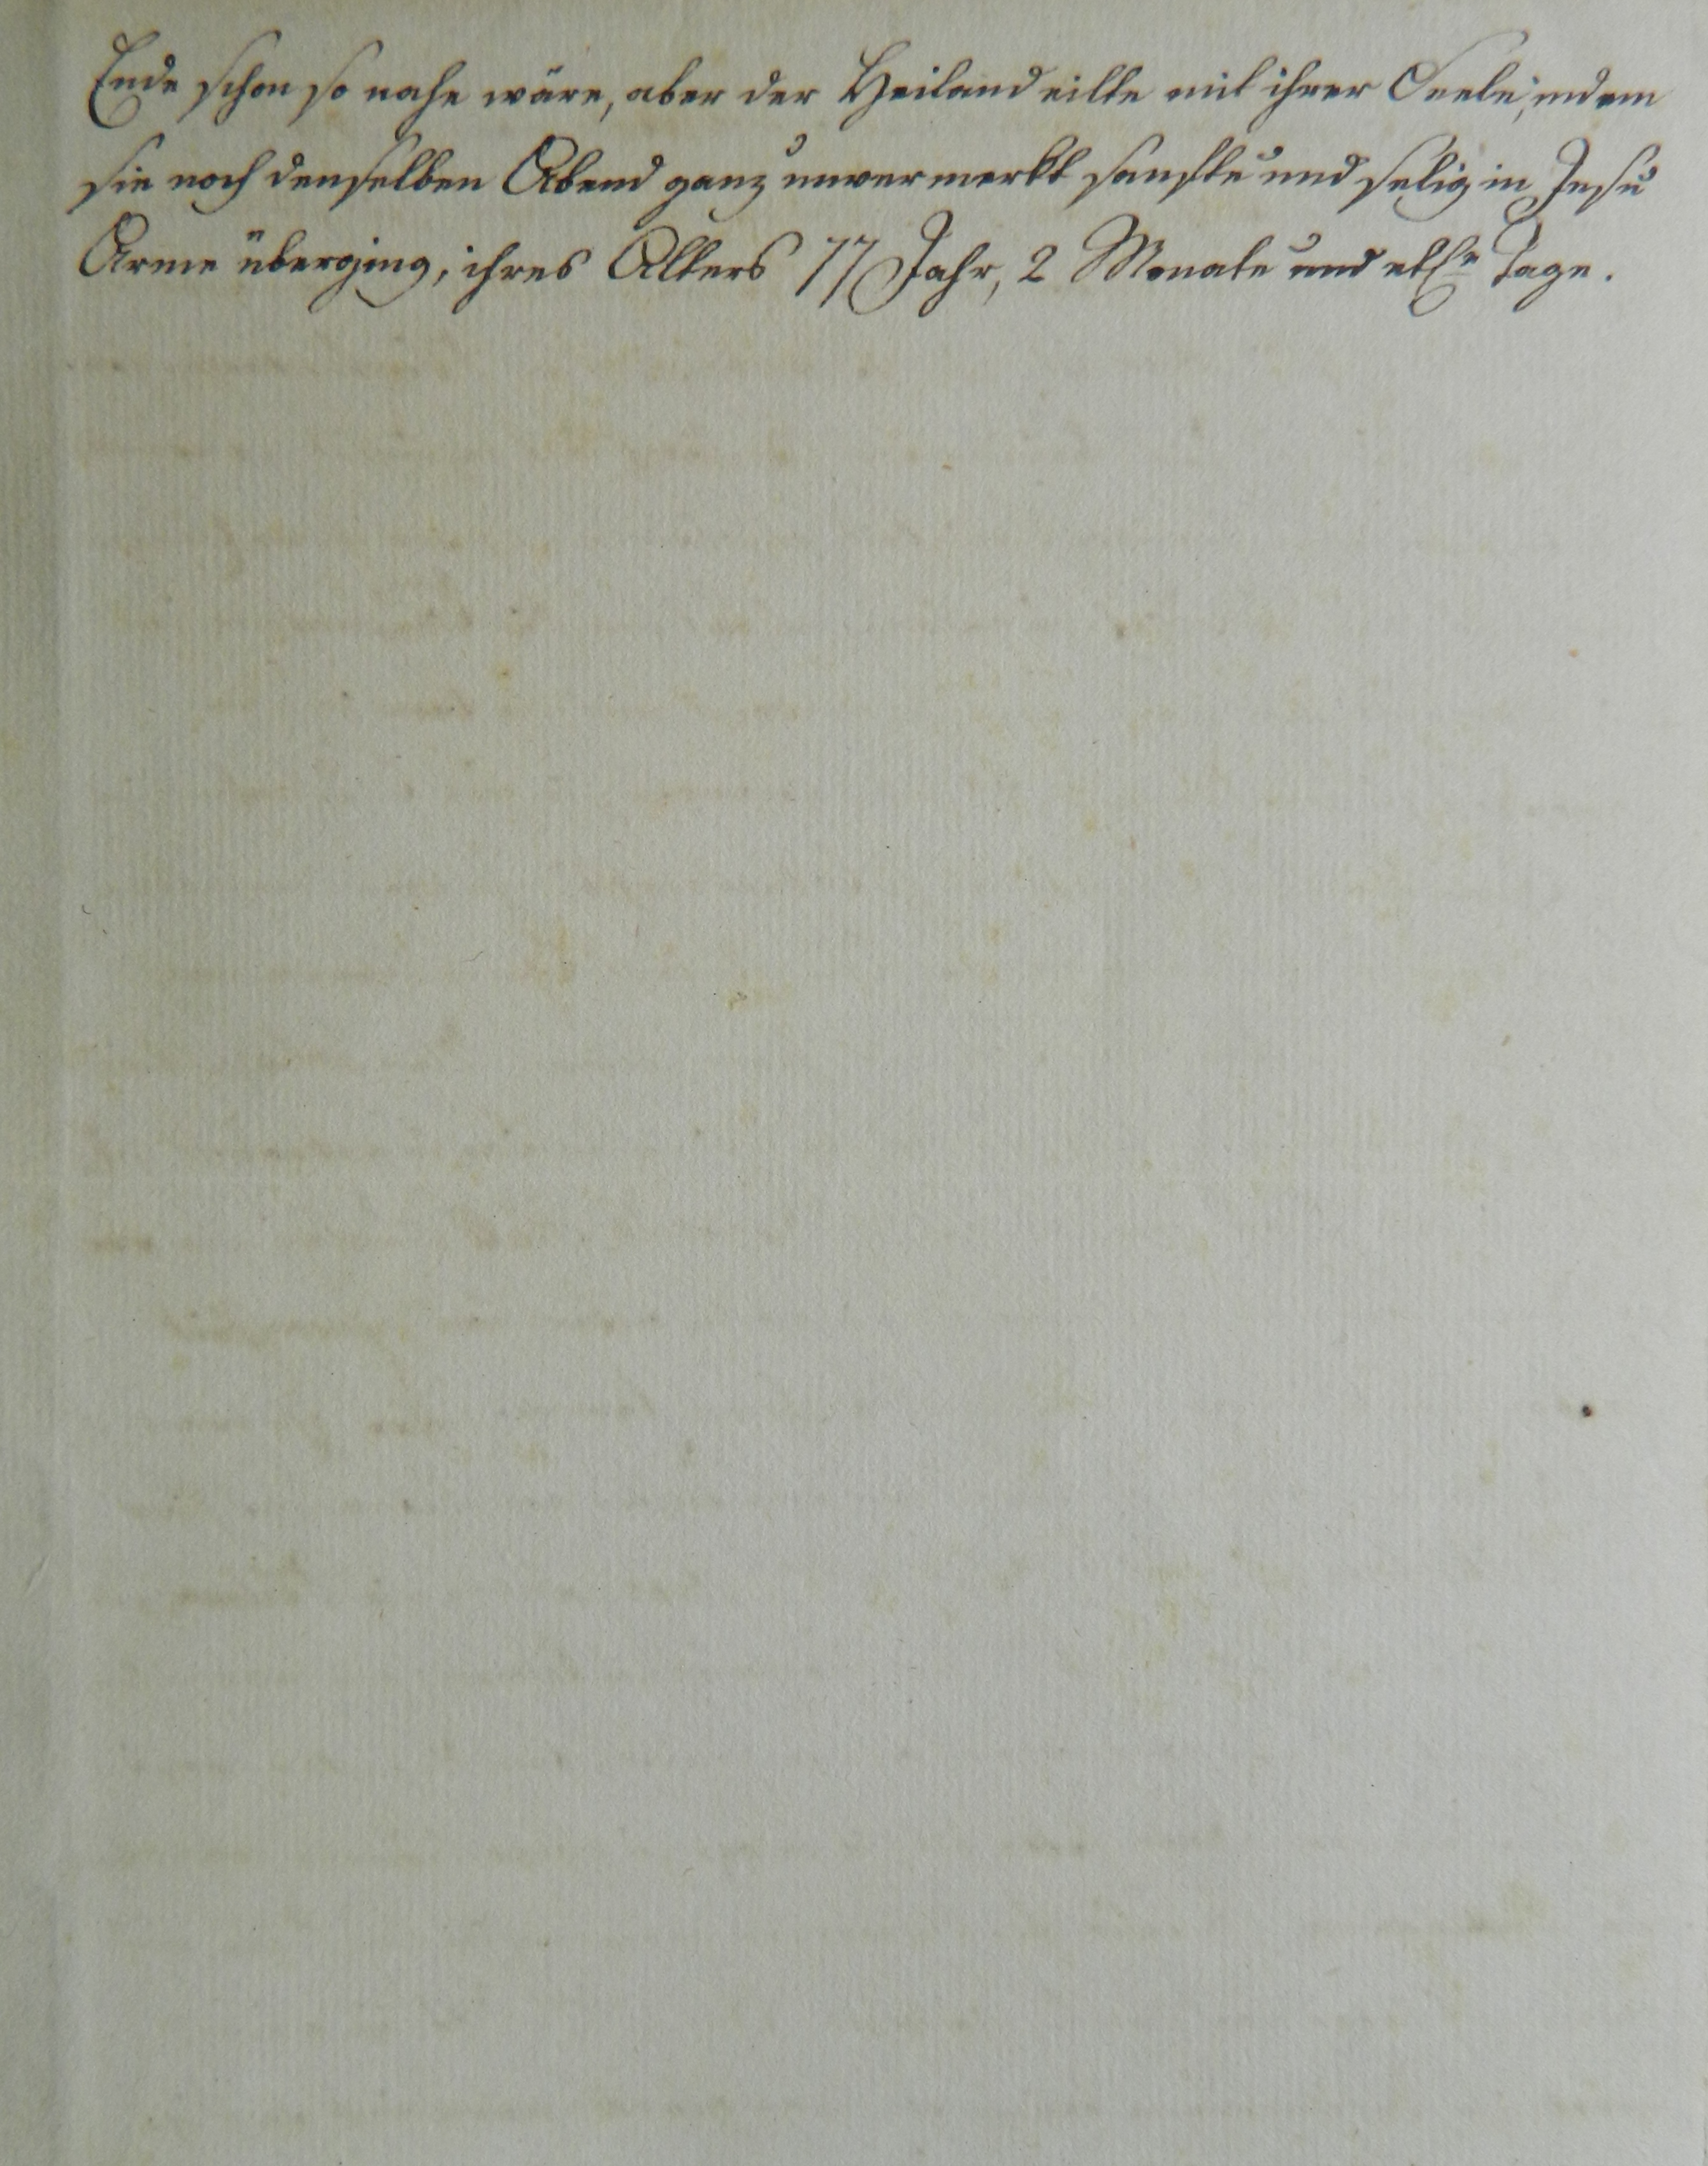 Ende schon so nahe wäre, aber der Heiland eilte mit ihrer Seele, indem
sie noch denselben Abend ganz unvermerkt sanfte und selig in Jesu
Arme überging, ihres Alters 77 Jahr, 2 Monate und etl<sup>e</sup> Tage.